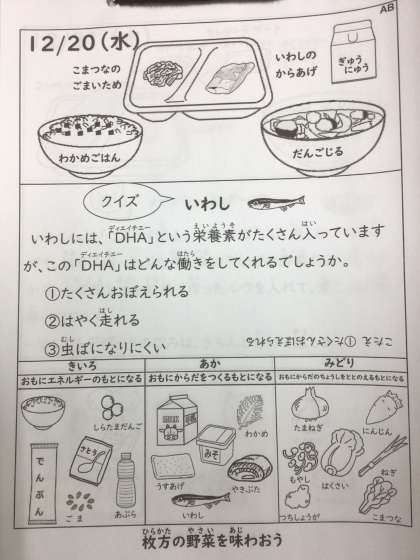 AB
12/20(水)
こまつなの
ごまいため
いわしの
からあげ
ぎゅう
にゅう
わかめごはん
だんごじる
クイズ
いわし
いわしには、「DHA」という栄養素がたくさん入っています
ディエイチエー
えいようそ
はい
が、この「DHA」はどんな働きをしてくれるでしょうか。
ディエイチエー
はたら
①たくさんおぼえられる
②はやく走れる
はし
③虫ばになりにくい
むし
こたえ ①たくさんおぼえられる
きいろ
あか
みどり
おもにエネルギーのもとになる
おもにからだをつくるもとになる
おもにからだのちょうしをととのえるもとになる
しらたまだんご
でんぷん
さとう
ごま
あぶら
わかめ
みそ
うすあげ
やきぶた
いわし
たまねぎ
にんじん
もやし
はくさい
ねぎ
つちしょうが
こまつな
枚方の野菜を味わおう
ひらかた
やさい
あじ